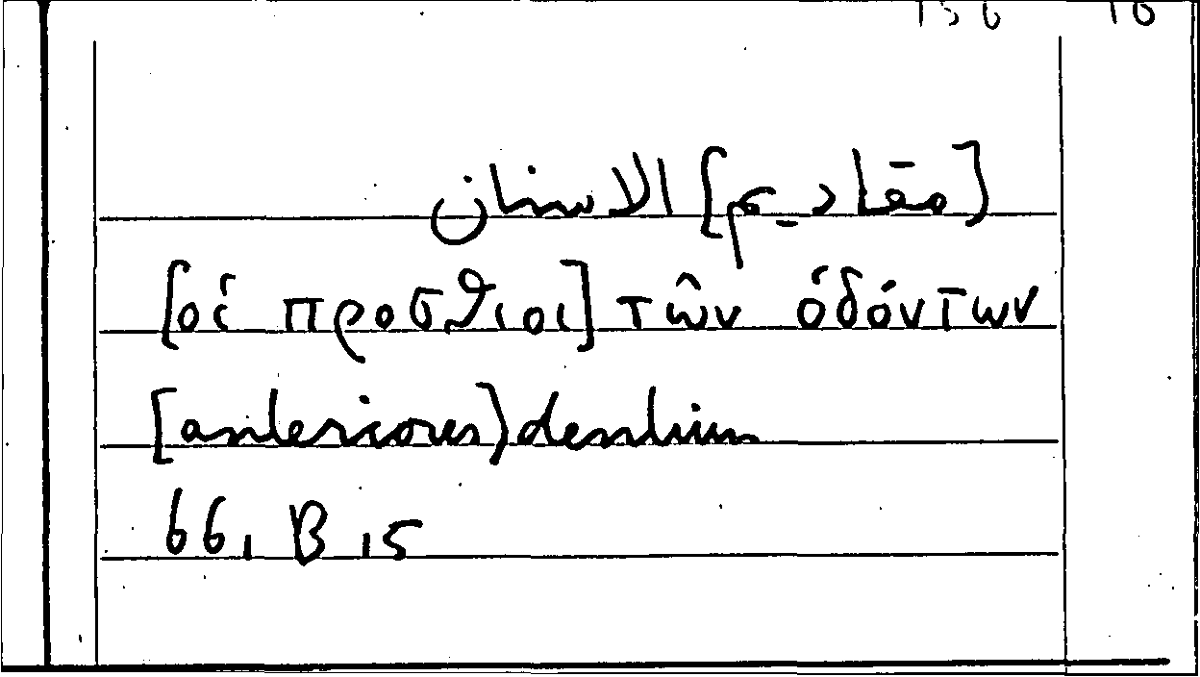 156 16
[مقاديم] الاسنان
[οἱ πρόσθιοι] τῶν ὀδόντων
[anteriores) dentium
66, B 15